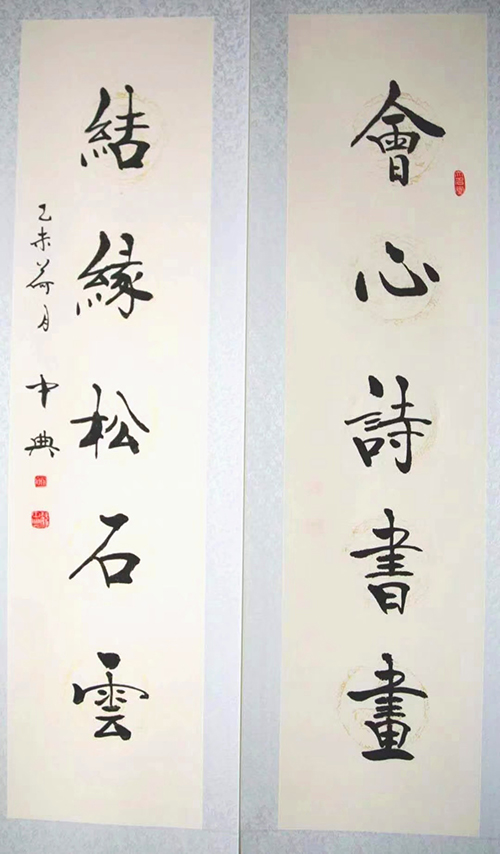 會心詩書畫
結緣松石雲
乙未荷月 中典